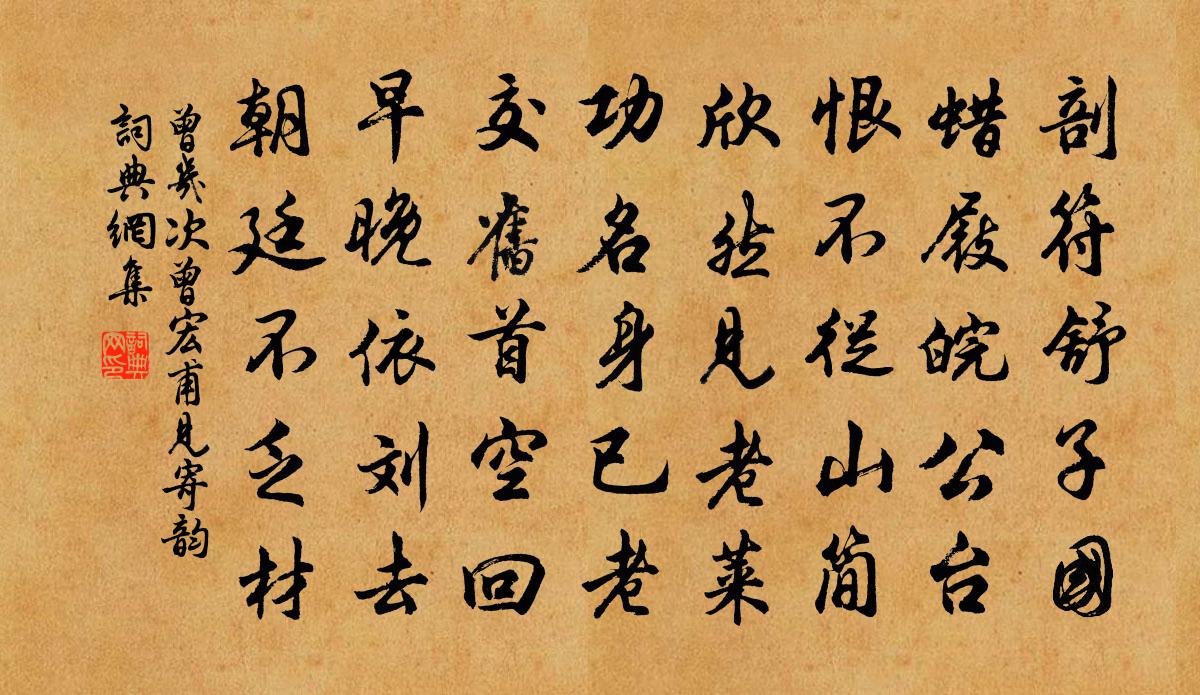 剖符舒子國
蜡屐皖公台
恨不從山簡
欣然見老萊
功名身已老
交舊首空回
早晚依刘去
朝廷不乏材
曾幾次曾宏甫見寄韵
詞典網集
詞典網印